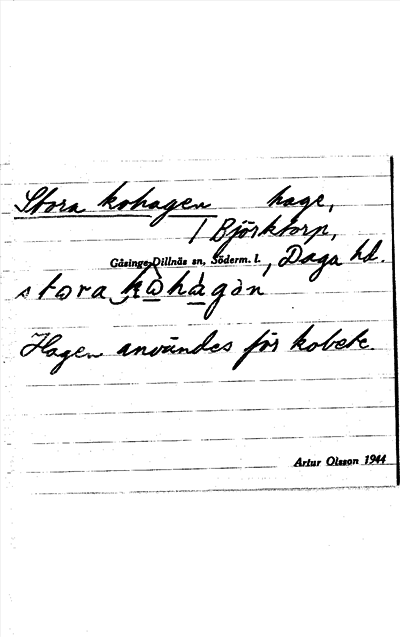 Stora kohagen hage,
/ Björktorp,
Gåsinge-Dillnäs sn, Söderm. l., Daga hd.
stora kωhàgǝn
Hagen användes för kobete.
Artur Olsson 1944